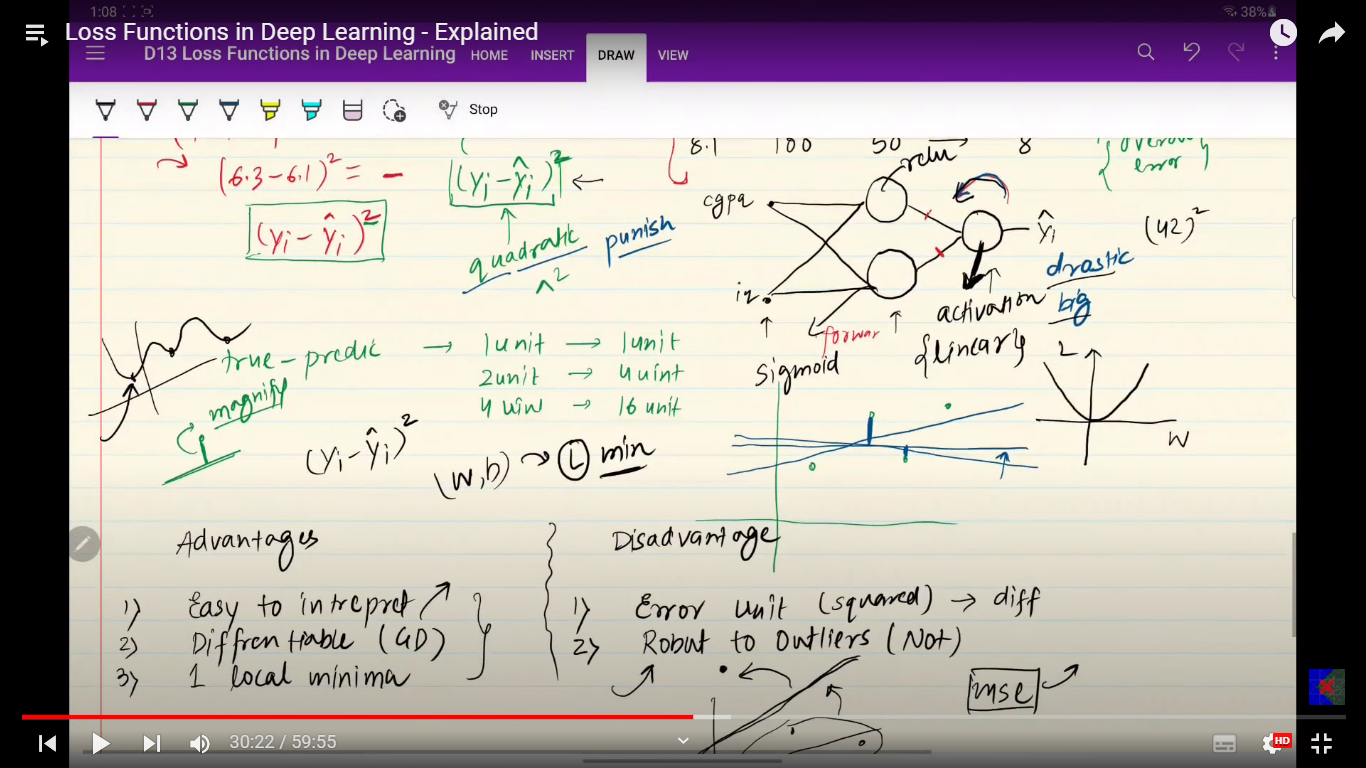 1:08
38%
Loss Functions in Deep Learning - Explained
D13 Loss Functions in Deep Learning HOME INSERT DRAW VIEW
Stop
8.1 100 50 8
overall
error
relu
(6.3-6.1)² = -
(yi-ŷi)²
(yi-ŷi)²
quadratic
^2
punish
cgpa
iq
ŷi
(42)²
drastic
big
activation
{linear}
forwar
sigmoid
true-predic → 1unit → 1unit
2unit → 4 uint
4 uiw → 16 unit
magnify
(yi-ŷi)²
(W,b) → L min
L
W
Advantages
1) Easy to intrepret
2) Diffrentiable (GD)
3) 1 local minima
Disadvantage
1) Error unit (squared) → diff
2) Robut to Outliers (Not)
mse
30:22 / 59:55
HD